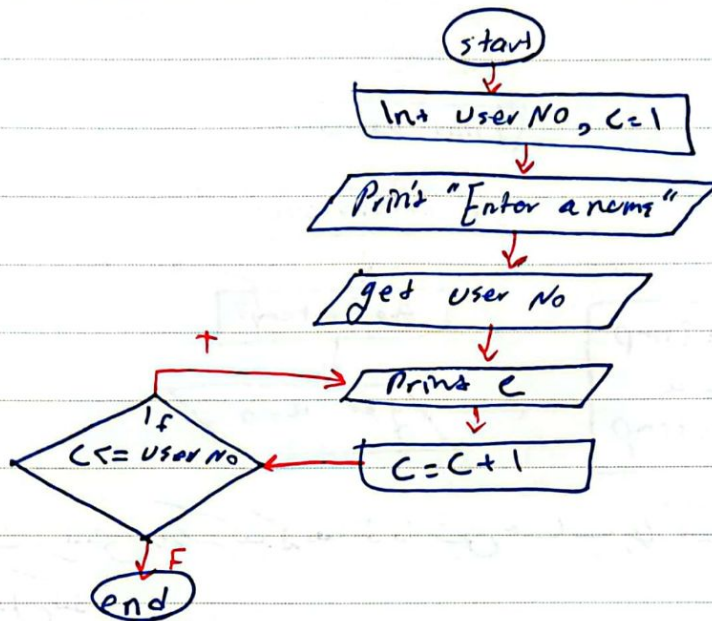 start
Int user NO, C=1
Print "Enter a name"
get user No
T
Print C
If
C<= user No
C=C+1
F
end